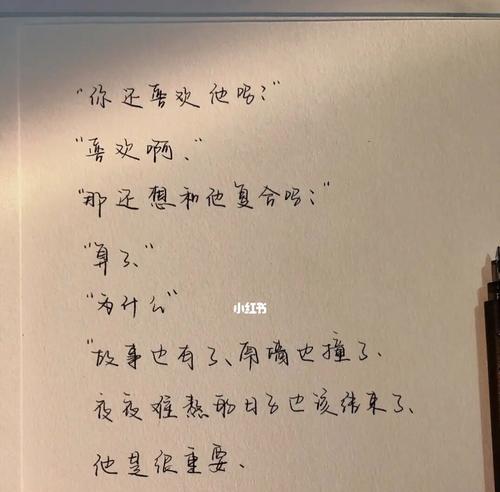 "你还喜欢他吗?"
"喜欢啊、"
"那还想和他复合吗?"
"算了、"
"为什么"
小红书
"故事也有了、南墙也撞了、
夜夜难熬的日子也该结束了、
他是很重要、